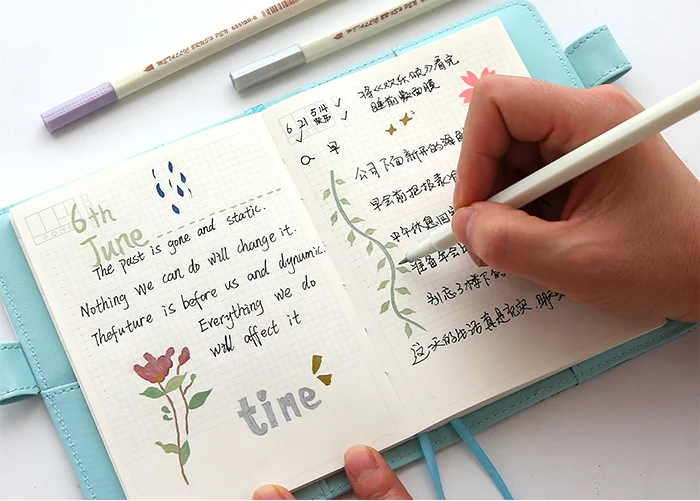 6th
June
The past is gone and static.
Nothing we can do will change it.
Thefuture is before us and dynamic.
Everything we do
will affect it
time
6 21 514
✓
✓
✓
早
将《欢乐颂》看完
睡前敷面膜
公司下面新开的
早会前把报表
中午休息回
准备年会
别忘了楼下
这一天的生活真是充实